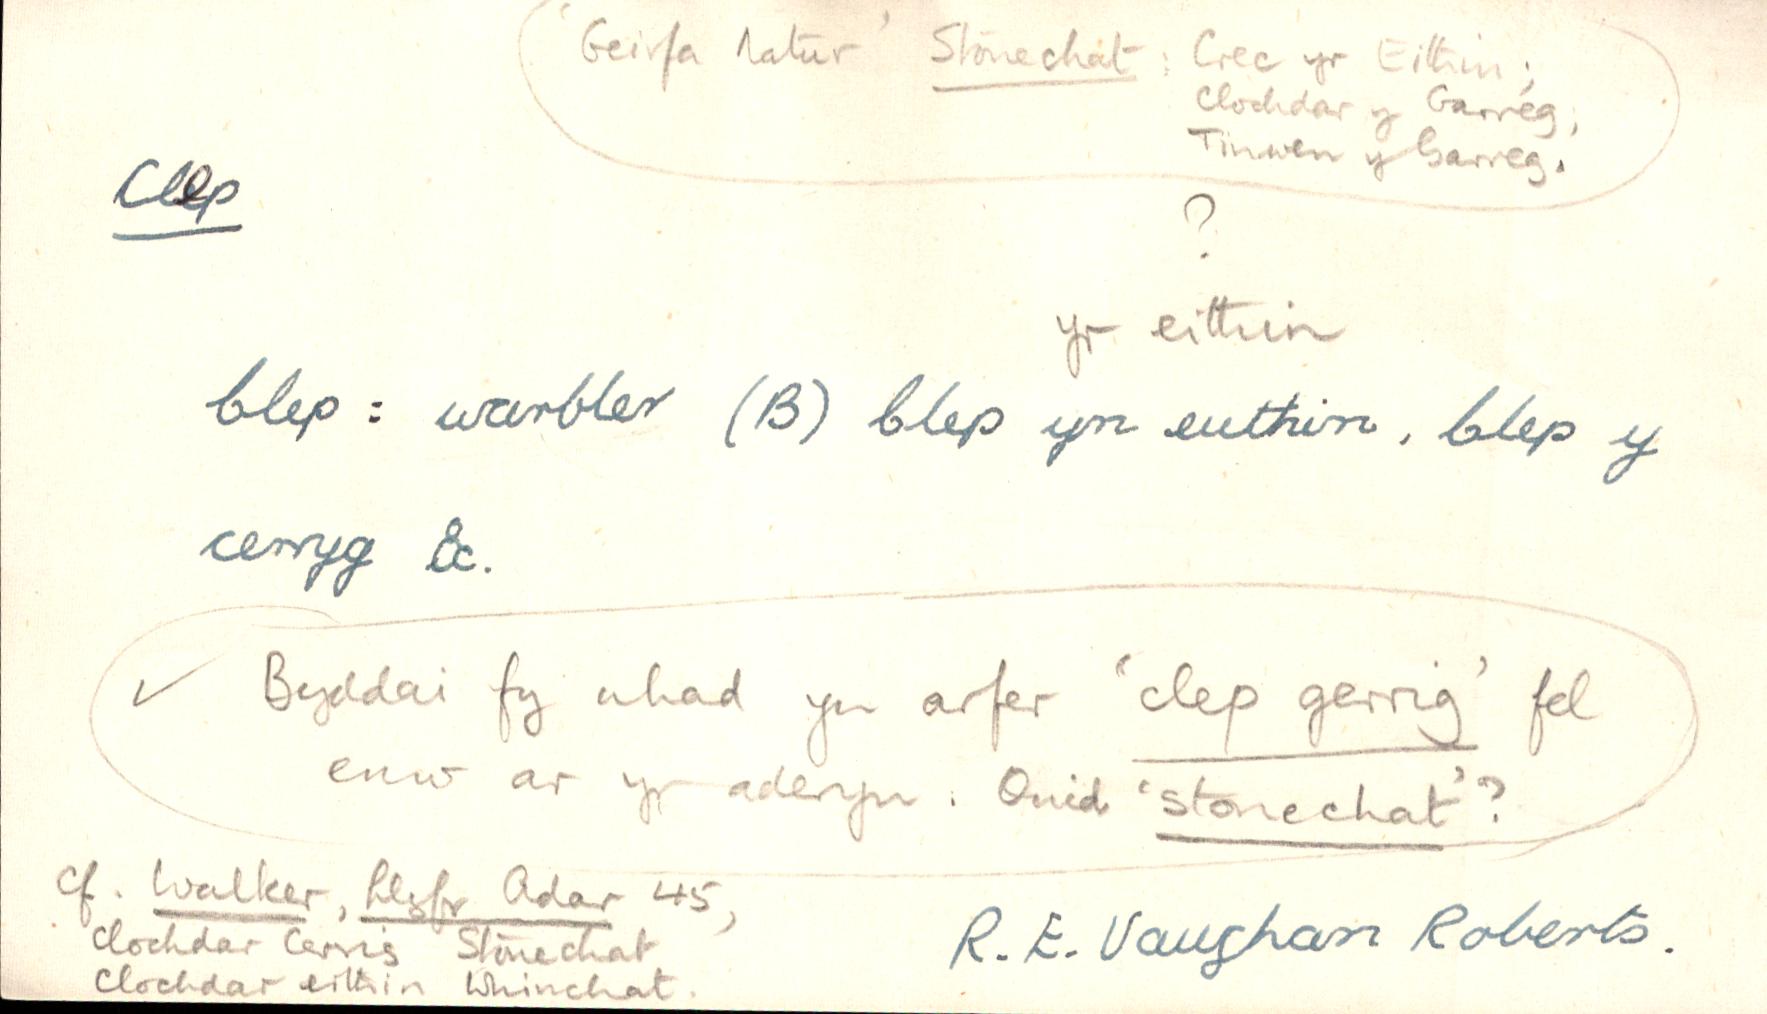 'Geirfa Natur' Stonechat: Crec yr Eithin;
Clochdar y Garreg;
Tinwen y Garreg.
Clep
?
yr eithin
clep = warbler (B) clep yn euthin, clep y
cerryg &c.
✓ Byddai fy nhad yn arfer 'clep gerrig' fel
enw ar yr aderyn. Onid 'stonechat'?
cf. Walker, Llyfr Adar 45,
Clochdar Cerrig Stonechat
Clochdar eithin Whinchat.
R. E. Vaughan Roberts.